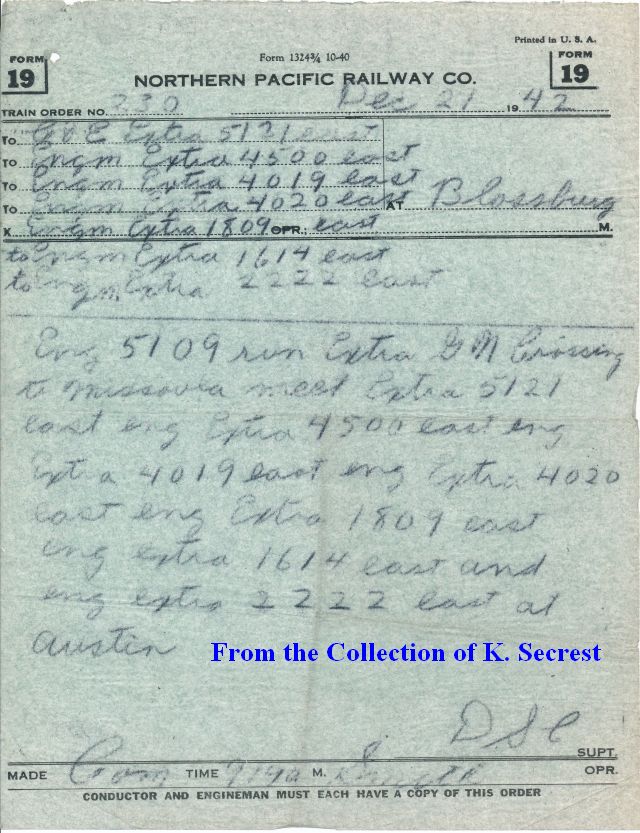 Printed in U. S. A.
FORM 19
Form 1324¾ 10-40
FORM 19
NORTHERN PACIFIC RAILWAY CO.
TRAIN ORDER NO. 330 Dec 21 1942
To C & E Extra 5121 east
To Engm Extra 4500 east
To Engm Extra 4019 east
To Engm Extra 4020 east AT Blossburg
X Engm Extra 1809 OPR.; east M.
to Engm Extra 1614 east
to Engm Extra 2222 east
Eng 5109 run Extra G N Crossing
to Missoula meet Extra 5121
east eng Extra 4500 east eng
Extra 4019 east eng Extra 4020
east eng Extra 1809 east
eng extra 1614 east and
eng extra 2222 east at
Austin
From the Collection of K. Secrest
D S C
SUPT.
MADE Com TIME M. OPR.
CONDUCTOR AND ENGINEMAN MUST EACH HAVE A COPY OF THIS ORDER